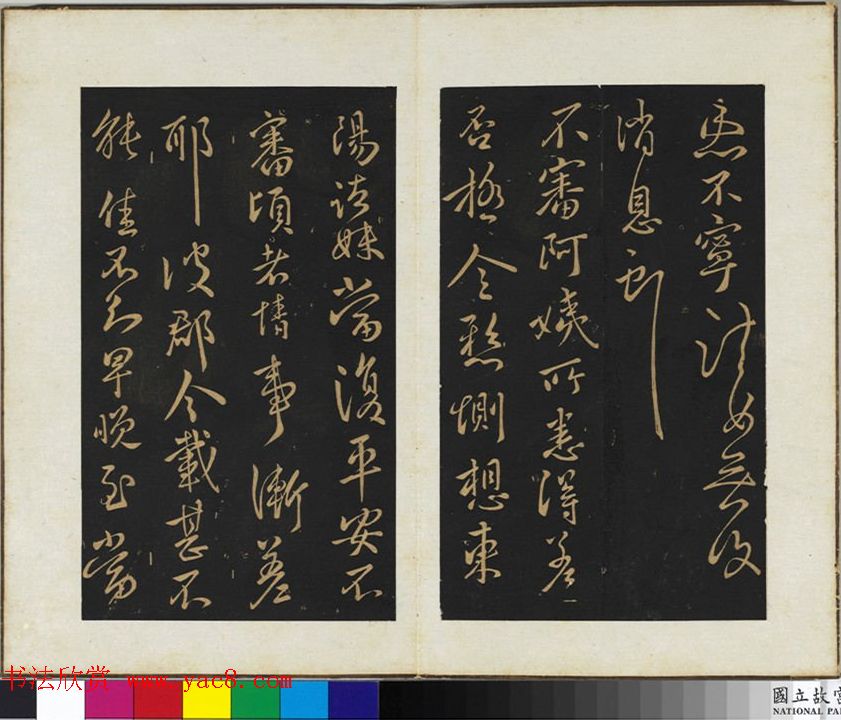 不寧諸女無復
消息
不審阿姨所患得差
否極令懸惻想東
陽諸妹當復平安不
審頃者情事漸差
耶彼郡今載甚不
能佳不知早晚至當
书法欣赏 www.yac8.com
國立故宮
NATIONAL PA